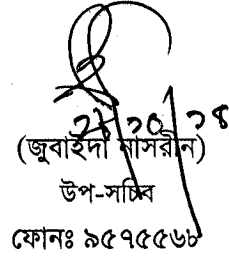 ২৮/১০/১৪
(জুবাইদা নাসরীন)
উপ-সচিব
ফোনঃ ৯৫৭৫৫৬৮